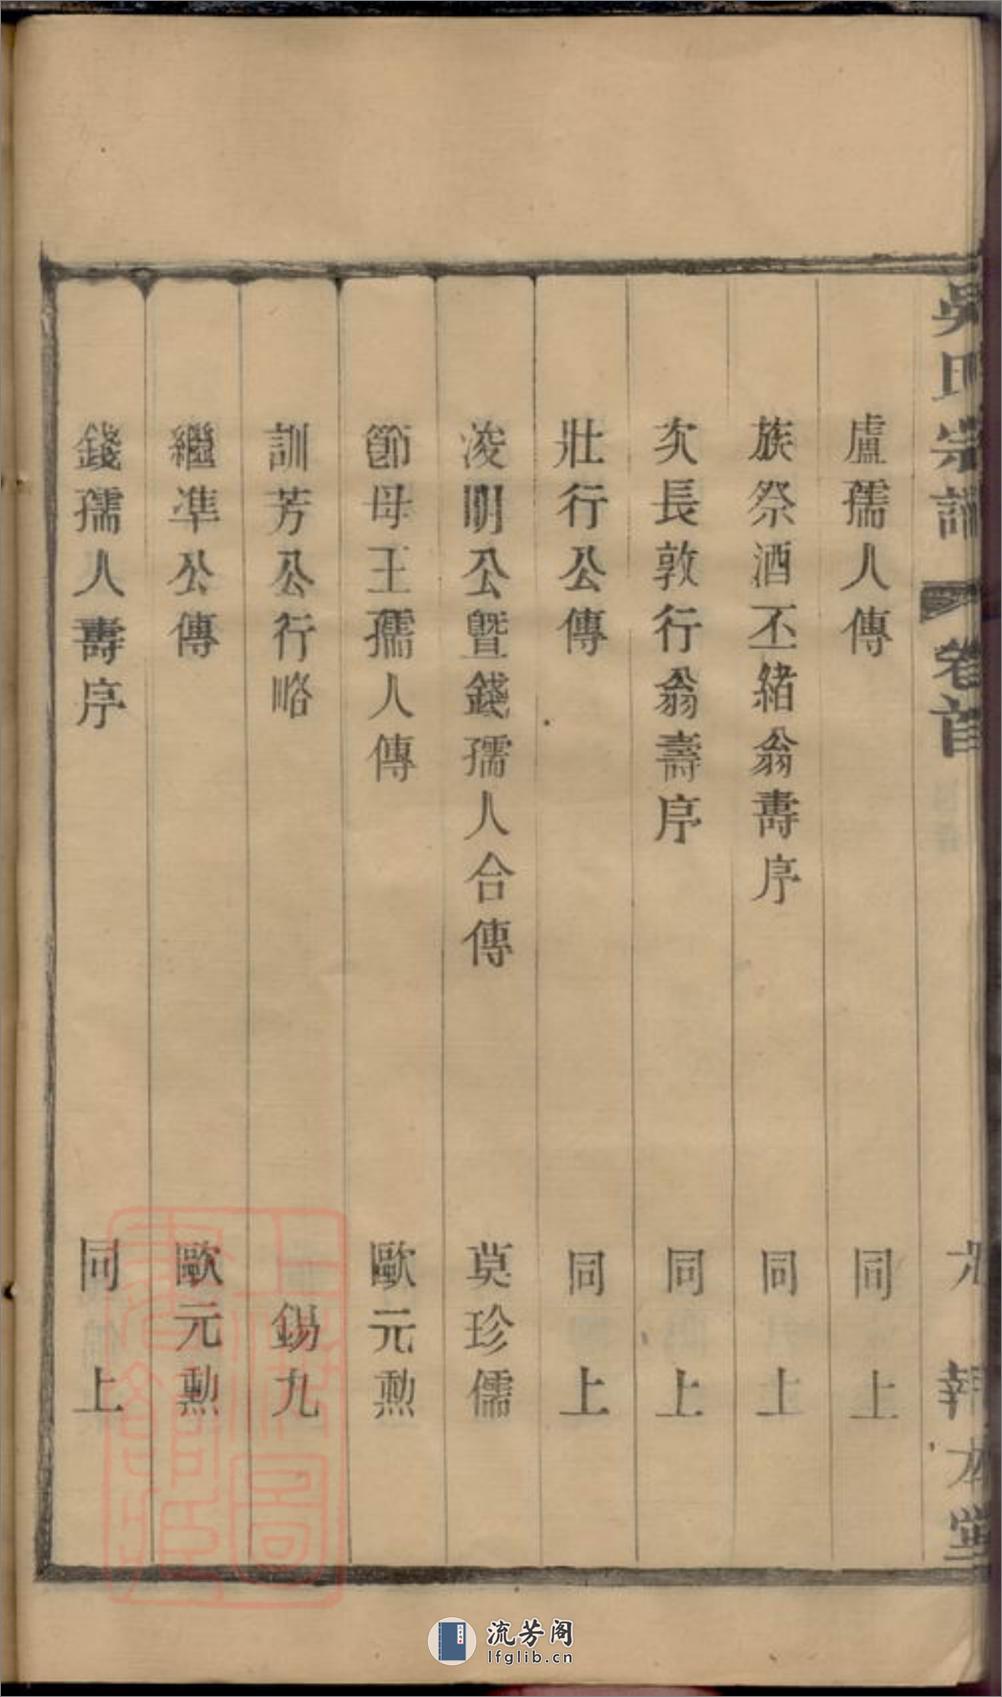 吳氏宗譜 卷首 九 報本堂
盧孺人傳 同上
族祭酒丕緒翁壽序 同上
次長敦行翁壽序 同上
壯行公傳 同上
浚明公暨錢孺人合傳 莫珍儒
節母王孺人傳 歐元勲
訓芳公行略 錫九
繼準公傳 歐元勲
錢孺人壽序 同上
上海圖書館藏
流芳阁
lfglib.cn